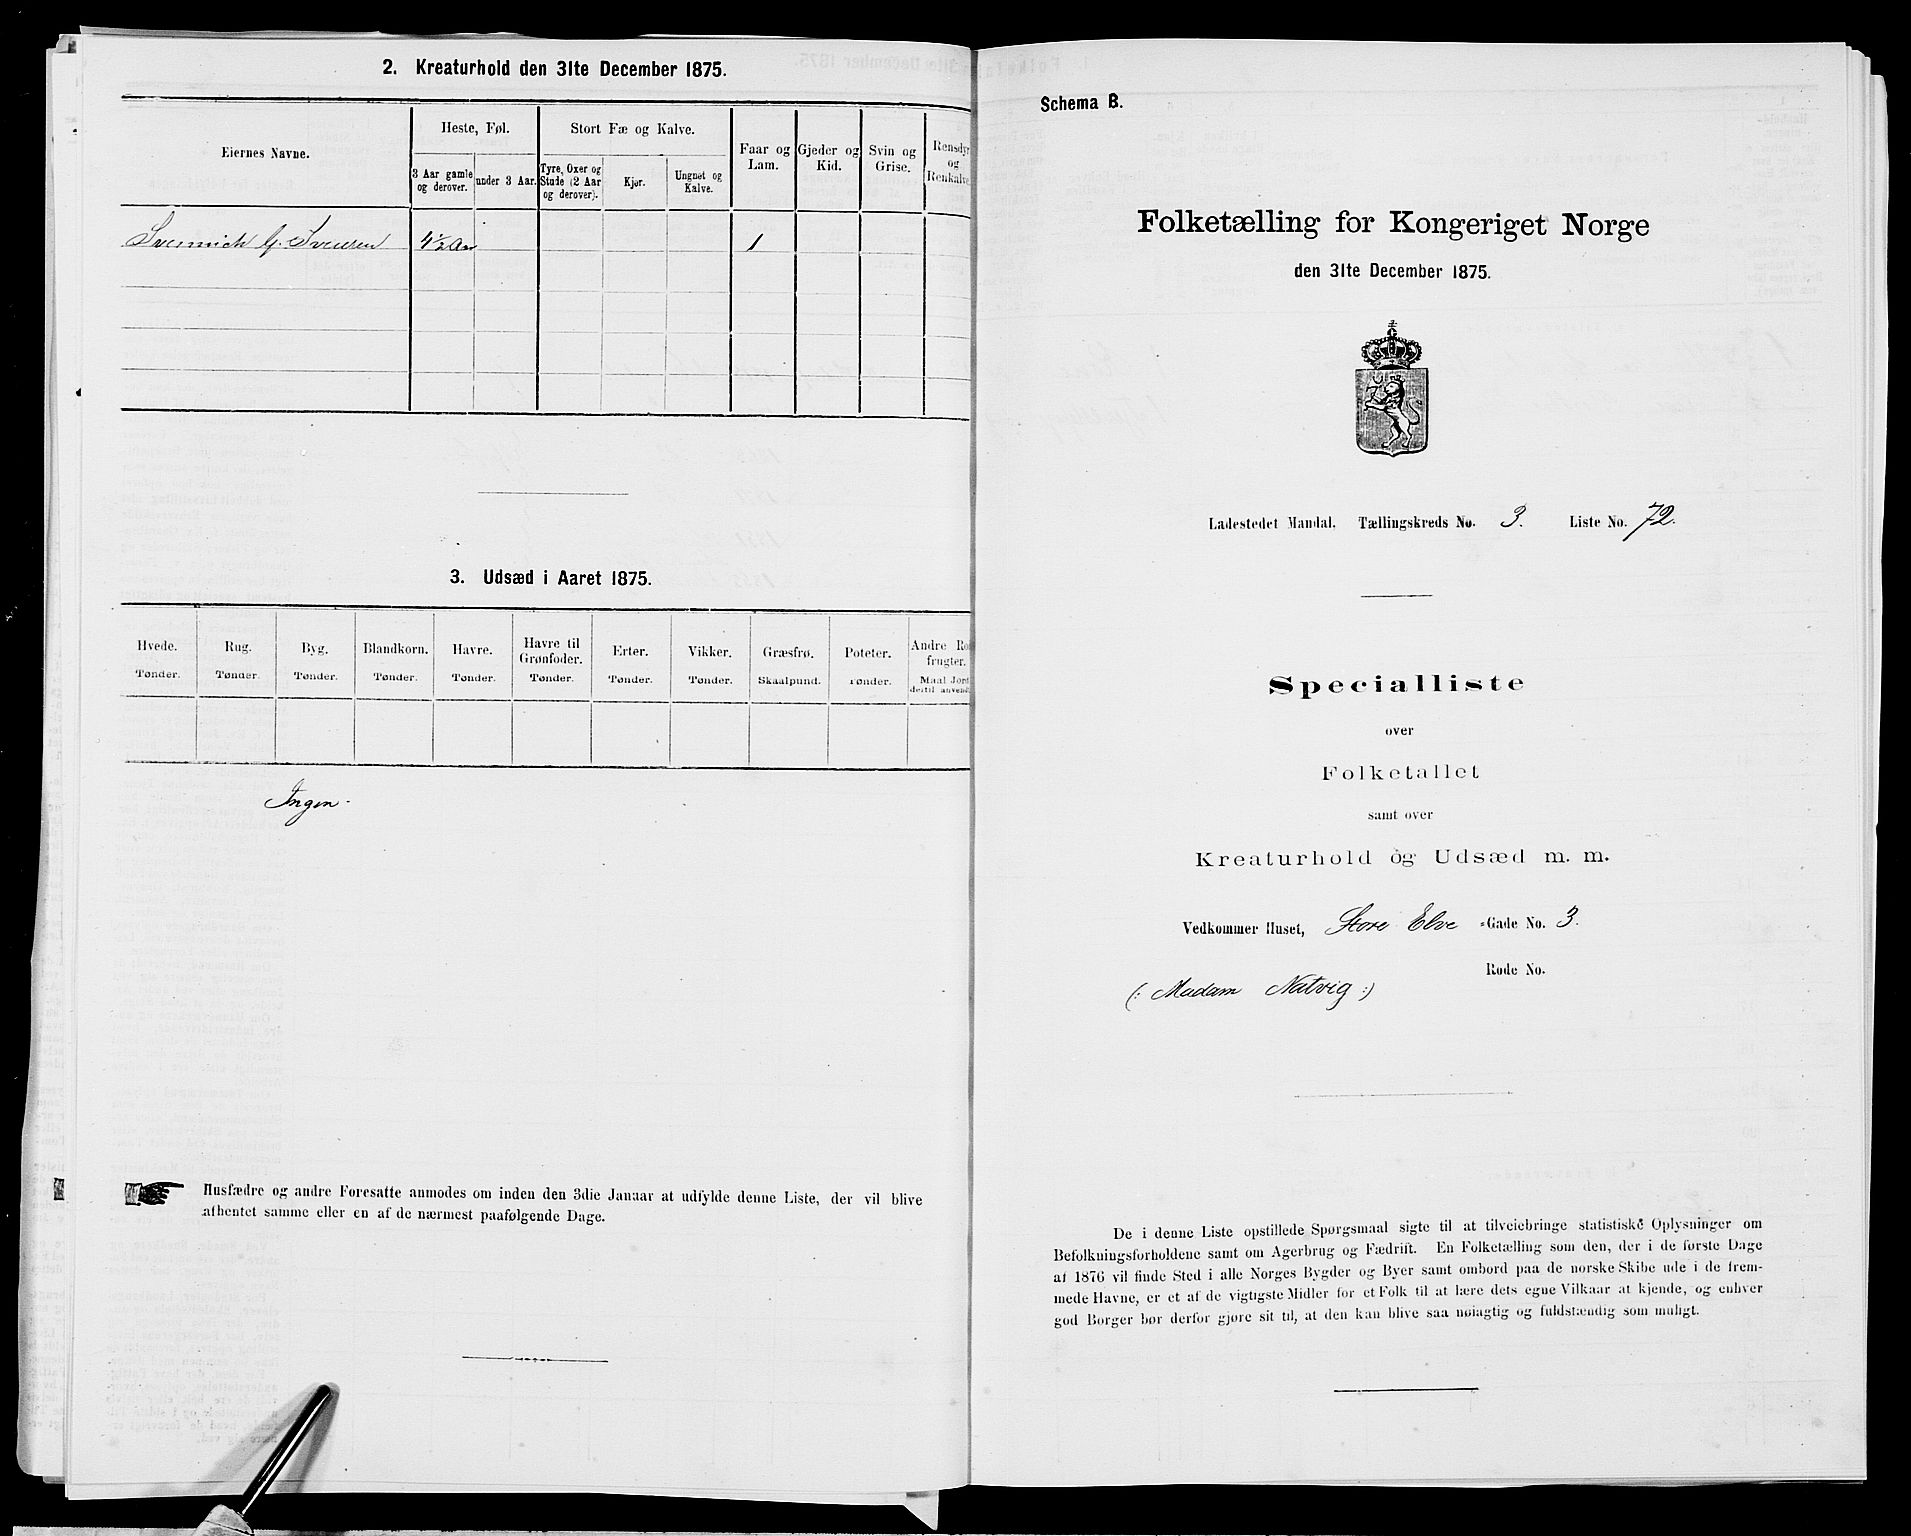 2. Kreaturhold den 31te December 1875.
Eiernes Navne.
Heste, Føl.
3 Aar gamle og derover.
under 3 Aar.
Stort Fæ og Kalve.
Tyre, Oxer og Stude (2 Aar og derover).
Kjør.
Ungnøt og Kalve.
Faar og Lam.
Gjeder og Kid.
Svin og Grise.
Rensdyr og Renkalve
4½ Aar
1
3. Udsæd i Aaret 1875.
Hvede. Tønder.
Rug. Tønder.
Byg. Tønder.
Blandkorn. Tønder.
Havre. Tønder.
Havre til Grønfoder. Tønder.
Erter. Tønder.
Vikker. Tønder.
Græsfrø. Skaalpund.
Poteter. Tønder.
Andre Ro frugter. Maal Jord dertil anvend
Ingen.
Husfædre og andre Foresatte anmodes om inden den 3die Januar at udfylde denne Liste, der vil blive
afhentet samme eller en af de nærmest paafølgende Dage.
Schema B.
Folketælling for Kongeriget Norge
den 31te December 1875.
Ladestedet Mandal. Tællingskreds No. 3. Liste No. 72.
Specialliste
over
Folketallet
samt over
Kreaturhold og Udsæd m. m.
Vedkommer Huset, Store Elve =Gade No. 3.
Rode No.
(: Madam Natvig :)
De i denne Liste opstillede Spørgsmaal sigte til at tilveiebringe statistiske Oplysninger om
Befolkningsforholdene samt om Agerbrug og Fædrift. En Folketælling som den, der i de første Dage
af 1876 vil finde Sted i alle Norges Bygder og Byer samt ombord paa de norske Skibe ude i de frem-
mede Havne, er et af de vigtigste Midler for et Folk til at lære dets egne Vilkaar at kjende, og enhver
god Borger bør derfor gjøre sit til, at den kan blive saa nøiagtig og fuldstændig som muligt.